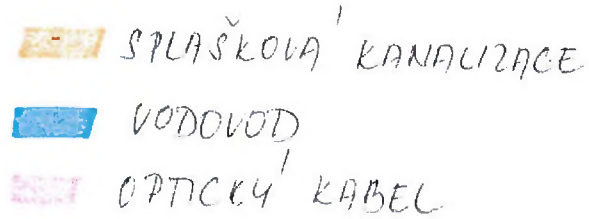 SPLAŠKOVÁ KANALIZACE
VODOVOD
OPTICKÝ KABEL